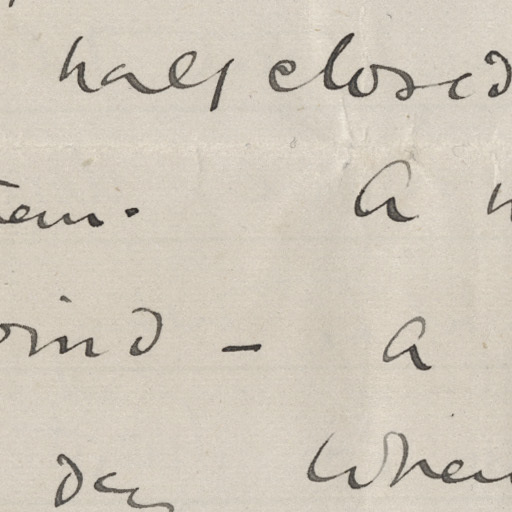 half closed
A
wind - a
day when